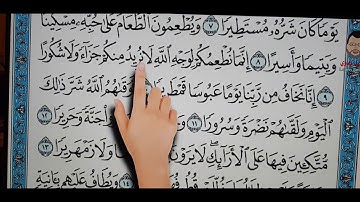 يَوْمًا كَانَ شَرُّهُۥ مُسْتَطِيرًا ٧ وَيُطْعِمُونَ ٱلطَّعَامَ عَلَىٰ حُبِّهِۦ مِسْكِينًا
وَيَتِيمًا وَأَسِيرًا ٨ إِنَّمَا نُطْعِمُكُمْ لِوَجْهِ ٱللَّهِ لَا نُرِيدُ مِنكُمْ جَزَآءً وَلَا شُكُورًا
٩ إِنَّا نَخَافُ مِن رَّبِّنَا يَوْمًا عَبُوسًا قَمْطَرِيرًا فَوَقَىٰهُمُ ٱللَّهُ شَرَّ ذَٰلِكَ
ٱلْيَوْمِ وَلَقَّىٰهُمْ نَضْرَةً وَسُرُورًا ١١ جَنَّةً وَحَرِيرًا ١٢
مُّتَّكِـِٔينَ فِيهَا عَلَى ٱلْأَرَآئِكِ لَا يَرَوْنَ وَلَا زَمْهَرِيرًا ١٣
١٤ وَيُطَافُ عَلَيْهِم بِـَٔانِيَةٍ